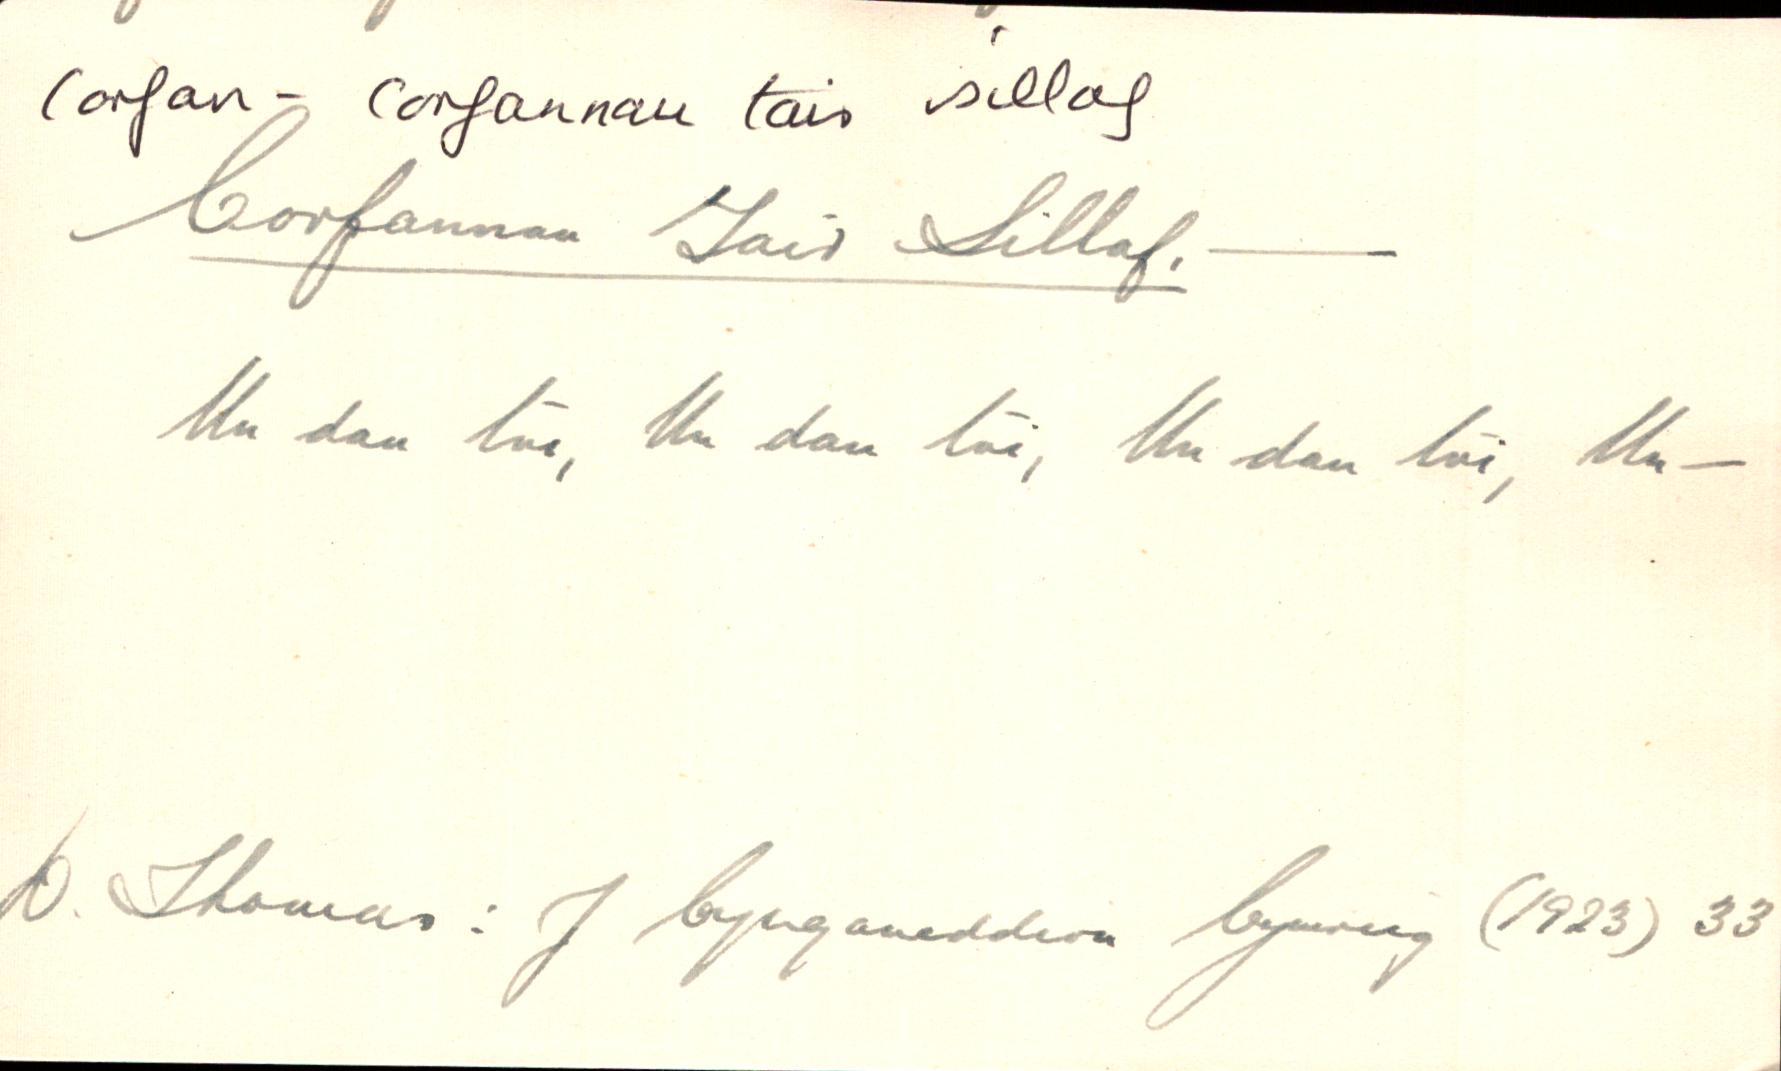 corfan - corfannau tair sillaf
Corfannau Tair Sillaf. —
Un dau tri, Un dau tri, Un dau tri, Un —
D. Thomas: Y Cynganeddion Cymreig (1923) 33